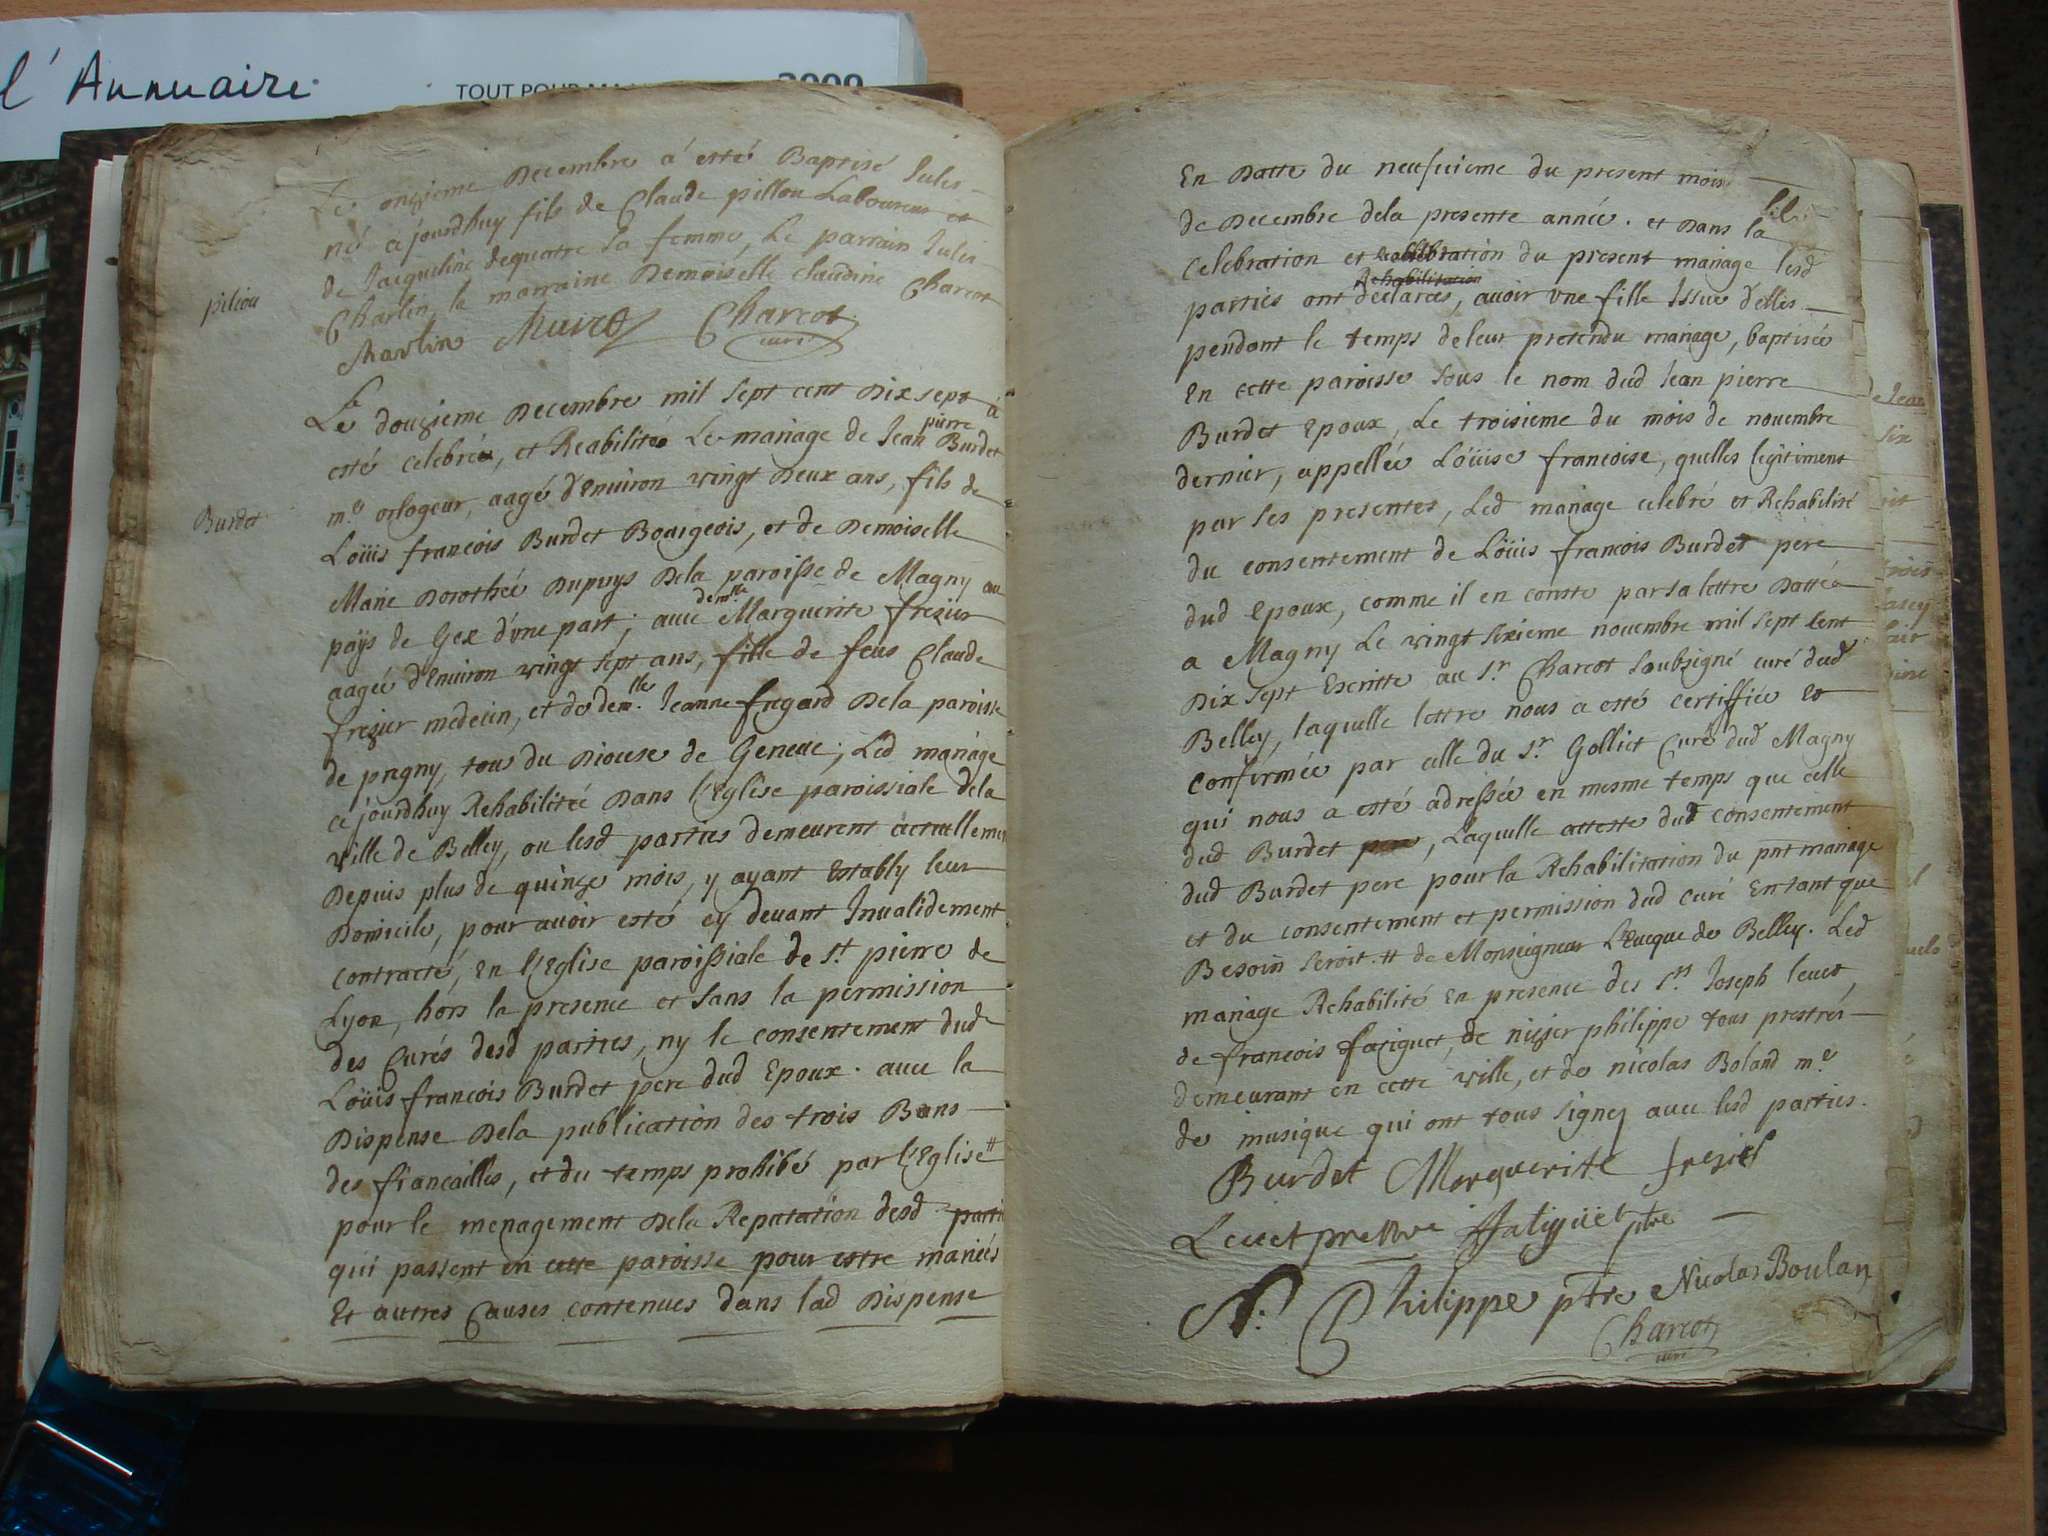 l'Annuaire
TOUT POUR
Le onzieme Decembre á esté Baptisé Jules
né cejourdhuy fils de Claude pillon Laboureur et
de Jacqueline dequatre sa femme, Le parrain Jules
Charlin, la marraine Demoiselle claudine Charcot
Charlin Charcot
curé
piliou
Le douzieme Decembre mil sept cent Dix sept à
pierre
esté celebré, et Reabilité Le mariage de Jean Burdet
Burdet
m.e orlogeur, aagé d'Environ vingt Deux ans, fils de
Loüis francois Burdet Bourgeois, et de Demoiselle
Marie Dorothée Dupuys Dela paroisse de Magny au
demlle
païs de Gex d'vne part; avec Marguerite frezier
aagée d'Environ vingt sept ans, fille de feus Claude
frezier medecin, et de dem.lle Jeanne fregard Dela paroisse
de pregny, tous du Diocese de Geneue; Led mariage
cejourdhuy Rehabilitée Dans l'Eglise paroissiale dela
ville de Belley, ou lesd parties demeurent actuellemen
Depuis plus de quinze mois, y ayant Establÿ leur
Domicile, pour avoir esté cy devant Invalidement
contracté, En l'Eglise paroissiale de St. pierre de
Lyon, hors la presence et sans la permission
des Curés desd parties, ny le consentement dud
Loüis francois Burdet pere dud Epoux. avec la
Dispense Dela publication des trois Bans
des fiancailles, et du temps prohibé par l'Eglise #
pour le menagement Dela Reputation desd parti
qui passent en cette paroisse pour estre mariés
Et autres Causes contenues dans lad Dispense
En Datte du neufuieme du present mois
de Decembre dela presente année. et Dans la
celebration et du present mariage lesd
Rehabilitation
parties ont declarées, avoir vne fille Issue d'elles
pendant le temps de leur pretendu mariage, baptisée
En cette paroisse sous le nom dud Jean pierre
Burdet Epoux, Le troisieme du mois de novembre
dernier, appellée Loüise francoise, quelles legitiment
par ses presentes, Led mariage celebré et Rehabilité
du consentement de Loüis francois Burdet pere
dud Epoux, comme il en conste par sa lettre Dattée
a Magny Le vingt sixieme novembre mil sept cent
Dix sept Escritte au Sr. Charcot soubsigné curé dud
Belley, laquelle lettre nous a esté certiffiée et
confirmée par celle du Sr. Golliet Curé dud Magny
qui nous a esté adressée en mesme temps que celle
dud Burdet pere, Laquelle atteste dud consentement
dud Burdet pere pour la Rehabilitation du pnt mariage
et du consentement et permission dud curé En tant que
Besoin seroit. # de Monseigneur L'Eveque de Belley. Led
mariage Rehabilité En presence des Srs Joseph levet,
de francois fatiguet, de nizier philippe tous prestres
demeurant en cette ville, et de nicolas Boland m.e
de musique qui ont tous signez avec lesd parties.
Burdet Marguerite freziel
Levet prettre ffatiguet ptre
N. Philippe ptre Nicolas Boulan
Charcot
curé